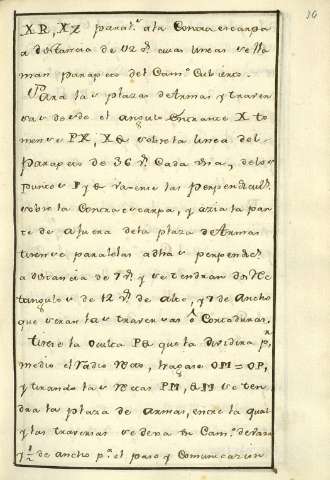 16
XR, XZ paral.s ala Contraescarpa
a distancia de 12 v.s cuias lineas se lla
man parapeto del Cam.o Cubierto.
Para las plazas de Armas y traver
sas desde el angulo Entrante X to
mense PX, X& sobre la linea del
Parapeto de 36 v.s Cada una, delos
puntos P y & saquense las perpendicul.s
sobre la Contraescarpa, y azia la par
te de afuera dela plaza de Armas
tirense paralelas adhas perpendic.s
a distancia de 7 v.s y se tendran dos Rec
tangulos de 12 v.s de alto, y 7 de Ancho
que seran las traversas ô Cortaduras.
Tirese la Oculta P& que la dividira p.r
medio el radio recto, hagase OM = OP,
y tirando las rectas PM, &M se ten
dra la plaza de armas, entre la qual
y las traversas se dexa un Cam.o de vara
y ½ de ancho p.a el paso y Comunicacion